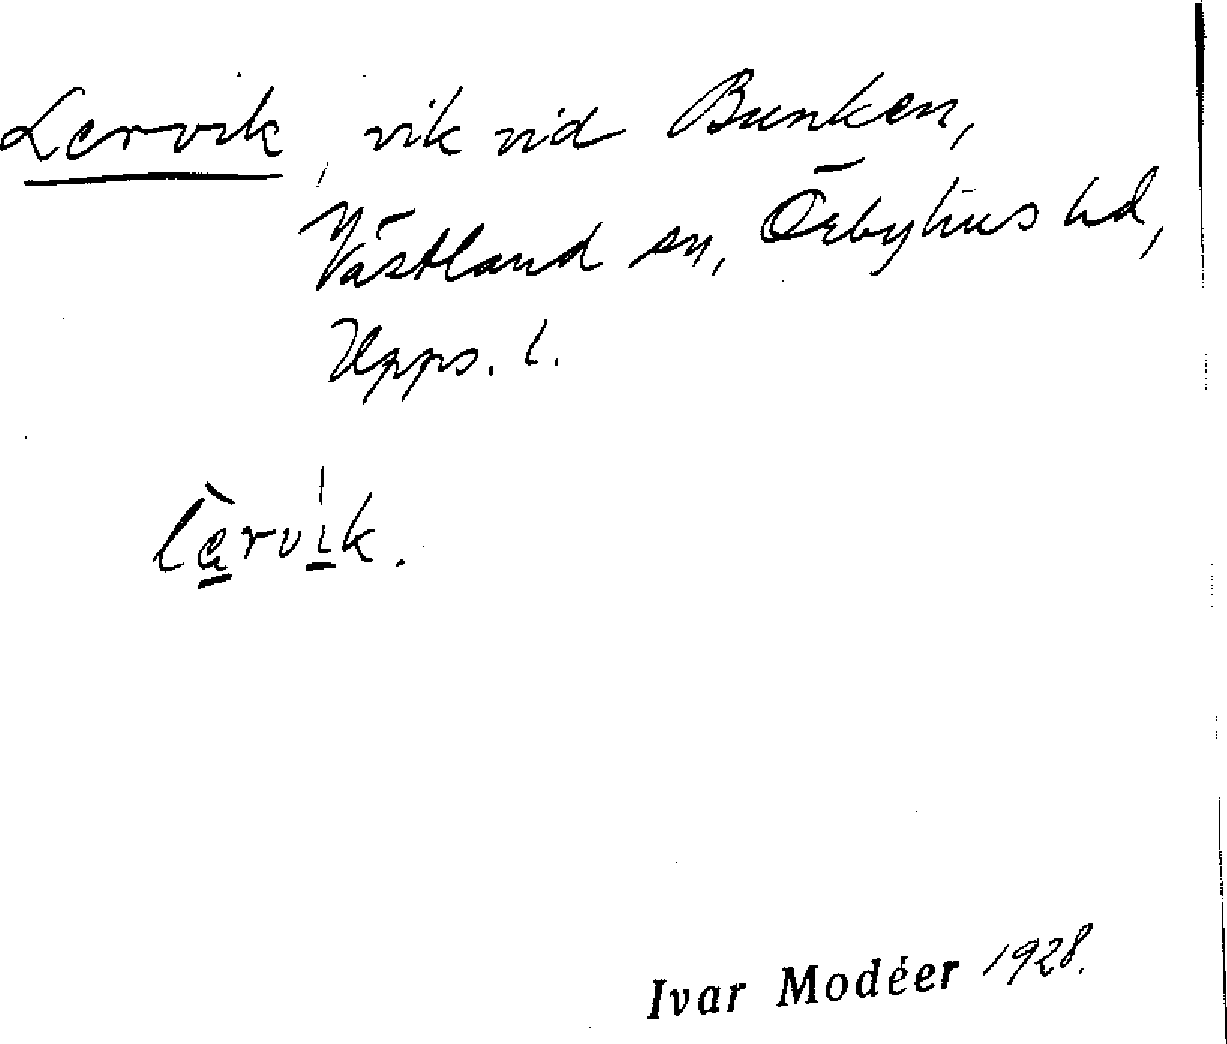 Lervik, vik vid Bunken,
Västland sn, Örbyhus hd,
Upps. l.
lèrvik.
Ivar Modéer 1928.